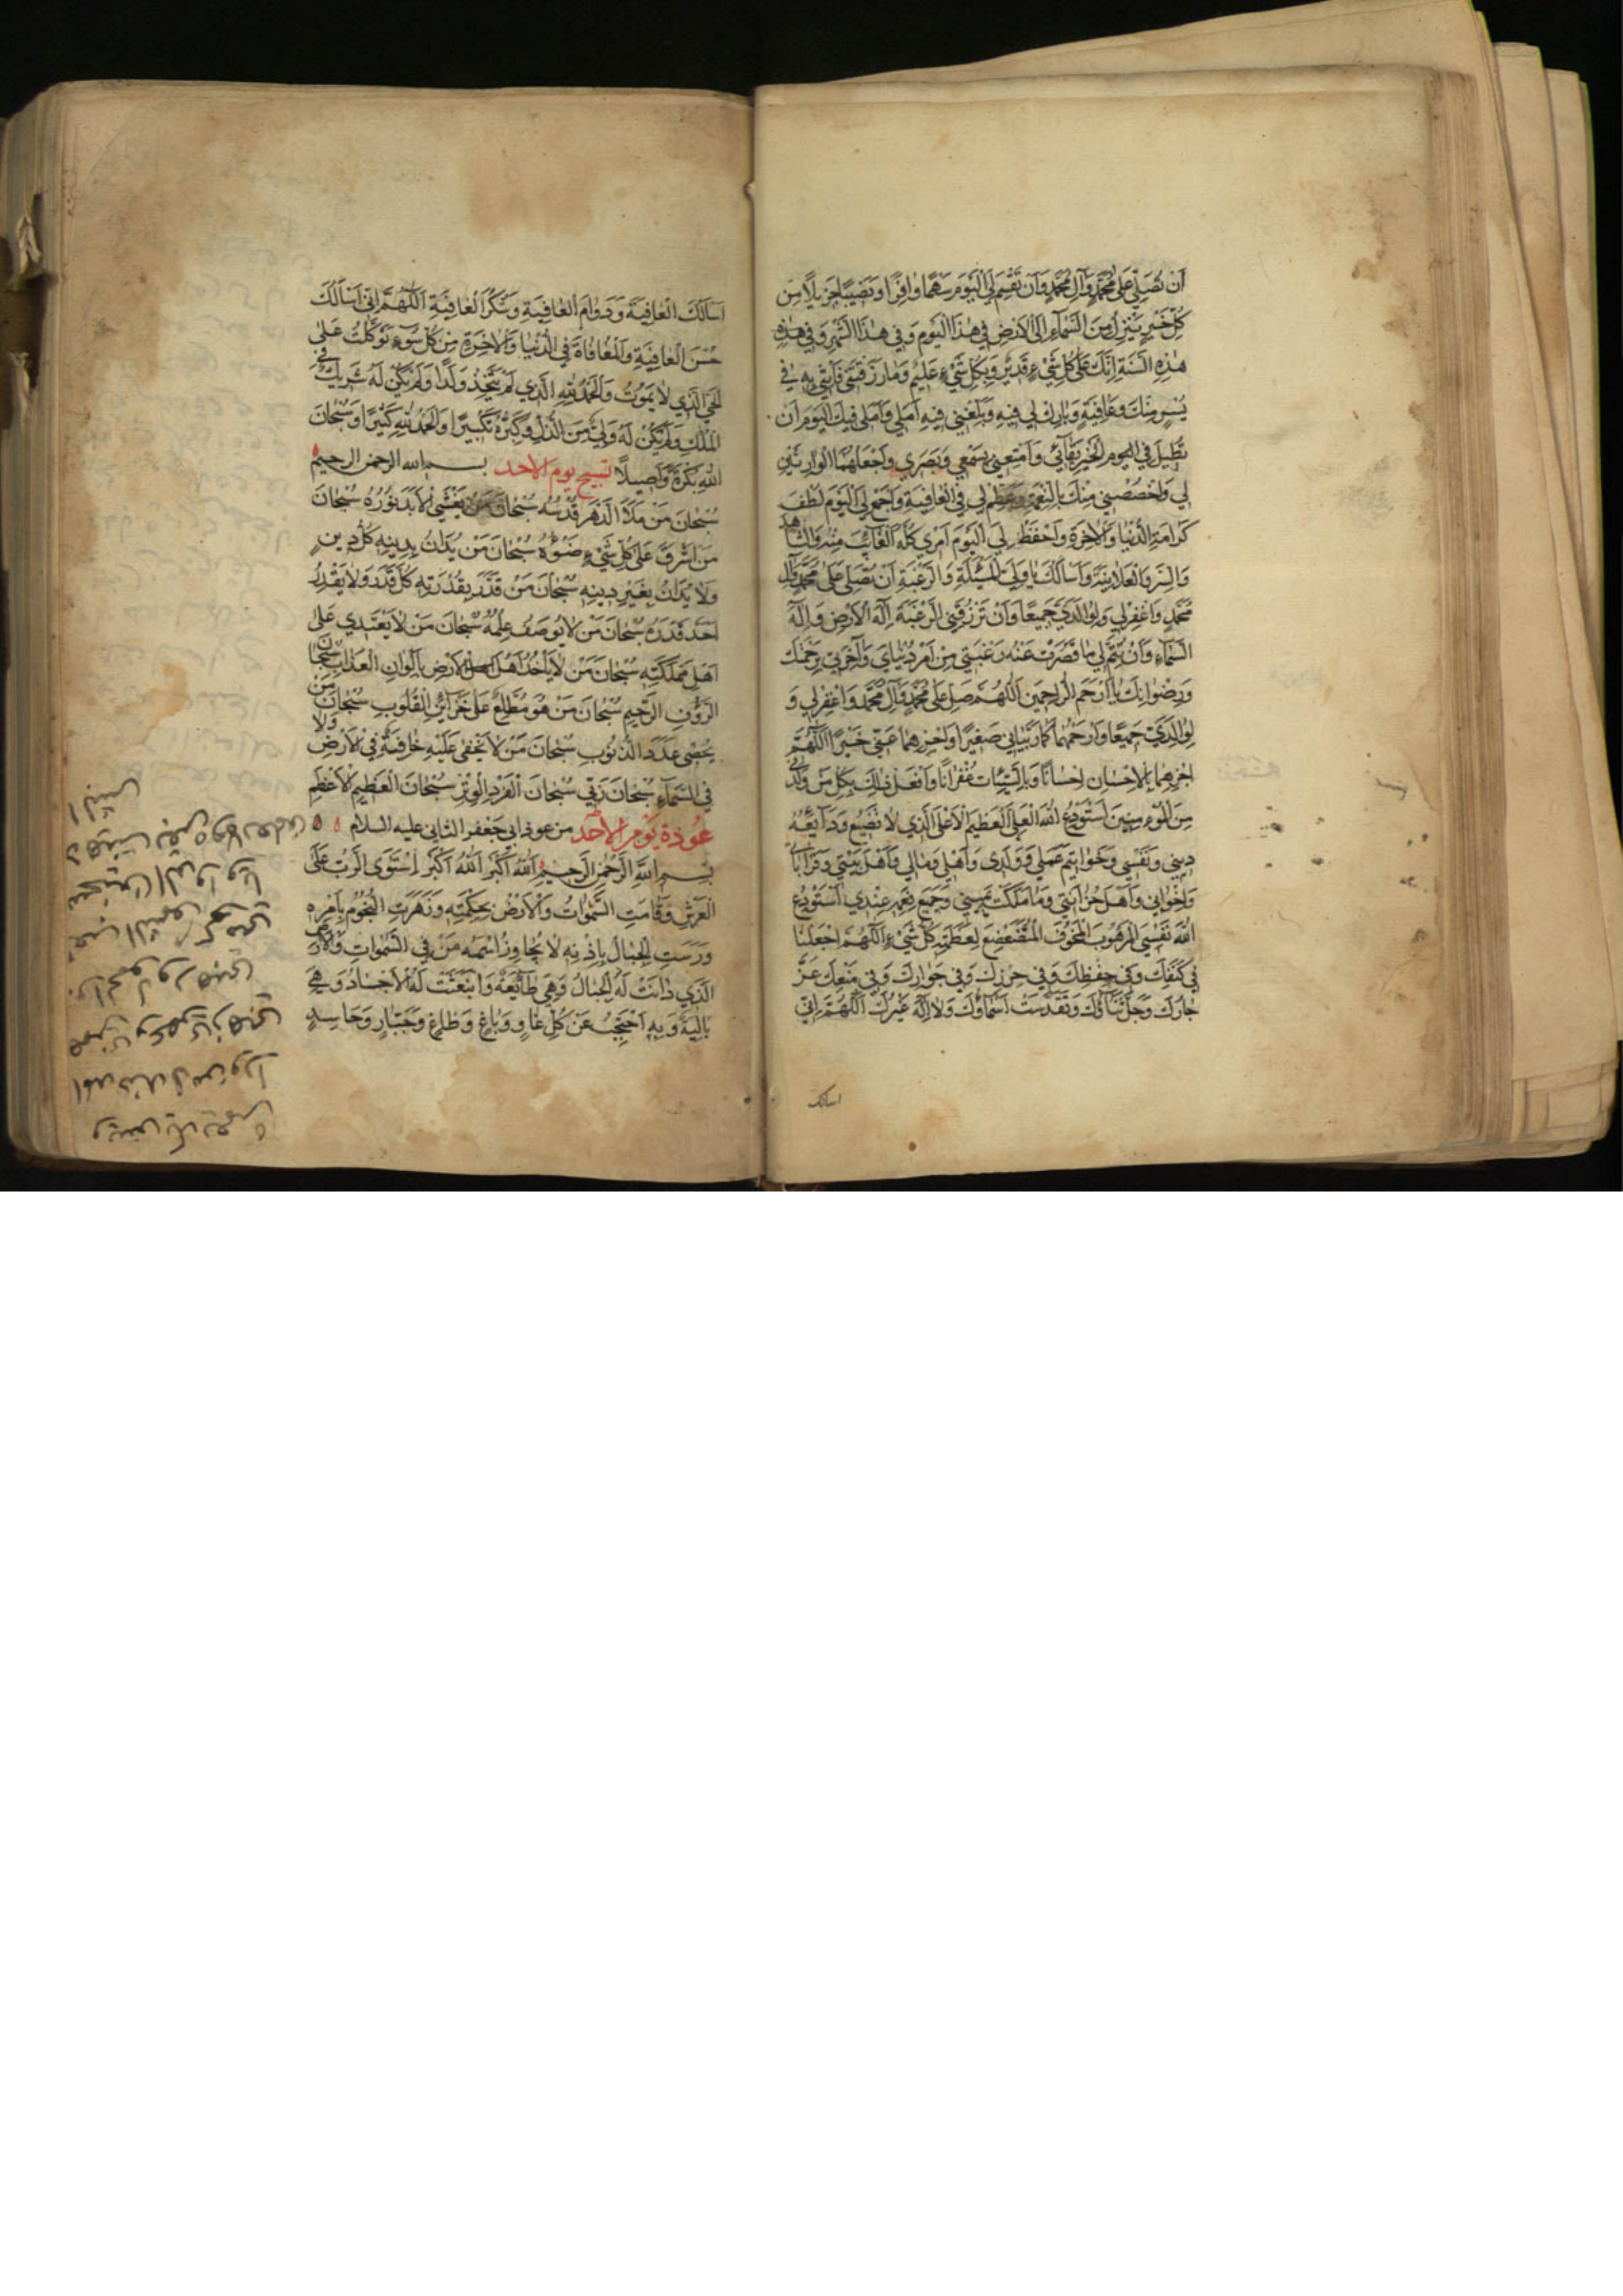 اَنْ تُصَلِّيَ عَلىٰ مُحَمَّدٍ وَآلِ مُحَمَّدٍ وَاَنْ تَقْسِمَ لِيَ الْيَوْمَ سَهْمًا وافِرًا وَنَصيبًا جَزيلًا مِنْ
كُلِّ خَيْرٍ يَنْزِلُ مِنَ السَّمآءِ اِلَى الْاَرْضِ في هٰذَا الْيَوْمِ وَفي هٰذَا الشَّهْرِ وَفي هٰذِهِ
هٰذِهِ السَّنَةِ اِنَّكَ عَلىٰ كُلِّ شَيْءٍ قَديرٌ وَبِكُلِّ شَيْءٍ عَليمٌ وَمٰا رَزَقْتَني فَاْتِني بِهِ في
يُسْرٍ مِنْكَ وَعافِيَةٍ وَبارِكْ لي فيهِ وَبَلِّغْني فيهِ اَمَلي وَاَمَلي فيكَ الْيَوْمَ اَنْ
تُطيلَ فِي الْخَيْرِ بَقآئي وَاَمْتِعْني بِسَمْعي وَبَصَري وَاجْعَلْهُمَا الْوارِثَيْنِ
لي وَاخْصُصْني مِنْكَ بِالنِّعْمَةِ وَعَظِّمْ لي فِي الْعافِيَةِ وَاجْمَعْ لِيَ الْيَوْمَ لُطْفَ
كَرامَةِ الدُّنْيا وَالْاٰخِرَةِ وَاحْفَظْ لِيَ الْيَوْمَ اَمْري كُلَّهُ الْغآئِبَ مِنْهُ وَالشّاهِدَ
وَالسِّرَّ وَالْعَلانِيَةَ وَاَسْاَلُكَ يا وَلِيَّ الْمَسْئَلَةِ وَالرَّغْبَةِ اَنْ تُصَلِّيَ عَلىٰ مُحَمَّدٍ وَآلِ
مُحَمَّدٍ وَاغْفِرْلي وَلِوالِدَيَّ جَميعًا وَاَنْ تَرْزُقَنِي الرَّغْبَةَ اِلٰهَ الْاَرْضِ وَاِلٰهَ
السَّمآءِ وَاَنْ تُتِمَّ لي ما قَصُرَتْ عَنْهُ رَغْبَتي مِنْ اَمْرِ دُنْيايَ وَآخِرَتي بِرَحْمَتِكَ
وَرِضْوانِكَ يا اَرْحَمَ الرّاحِمينَ اَللّٰهُمَّ صَلِّ عَلىٰ مُحَمَّدٍ وَآلِ مُحَمَّدٍ وَاغْفِرْلي وَ
لِوالِدَيَّ جَميعًا وَارْحَمْهُما كَما رَبَّياني صَغيرًا وَاجْزِهِما عَنّي خَيْرًا اَللّٰهُمَّ
اجْزِهِما بِالْاِحْسانِ اِحْسانًا وَبِالسَّيِّئاتِ غُفْرانًا وَافْعَلْ ذٰلِكَ بِكُلِّ مَنْ وَلَّدَني
مِنَ الْمُؤْمِنينَ اَسْتَوْدِعُ اللّٰهَ الْعَلِيَّ الْعَظيمَ الْاَعْلَى الَّذي لا تَضيعُ وَدآيِعُهُ
ديني وَنَفْسي وَخَواتيمَ عَمَلي وَوَلَدي وَاَهْلي وَمالي وَاَهْلَ بَيْتي وَقَراباتي
وَاِخْواني وَاَهْلَ حُزانَتي وَما مَلَكَتْ يَميني وَجَميعَ نِعَمِهِ عِنْدي اَسْتَوْدِعُ
اللّٰهَ نَفْسِيَ الْمَرْهُوبَ الْمَخُوفَ الْمُتَضَعْضِعَ لِعَظَمَتِهِ كُلُّ شَيْءٍ اَللّٰهُمَّ اجْعَلْنا
في كَنَفِكَ وَفي حِفْظِكَ وَفي حِرْزِكَ وَفي جَوارِكَ وَفي مَنْعِكَ عَزَّ
جارُكَ وَجَلَّ ثَنآؤُكَ وَتَقَدَّسَتْ اَسْمآؤُكَ وَلا اِلٰهَ غَيْرُكَ اَللّٰهُمَّ اِنّي
اسالک
اَسْاَلُكَ الْعافِيَةَ وَدَوامَ الْعافِيَةِ وَشُكْرَ الْعافِيَةِ اَللّٰهُمَّ اِنّي اَسْاَلُكَ
حُسْنَ الْعافِيَةِ وَالْمُعافاةَ فِي الدُّنْيا وَالْاٰخِرَةِ مِنْ كُلِّ سُوءٍ تَوَكَّلْتُ عَلَى
الْحَيِّ الَّذي لا يَمُوتُ وَالْحَمْدُ لِلّٰهِ الَّذي لَمْ يَتَّخِذْ وَلَدًا وَلَمْ يَكُنْ لَهُ شَريكٌ فِي
الْمُلْكِ وَلَمْ يَكُنْ لَهُ وَلِيٌّ مِنَ الذُّلِّ وَكَبِّرْهُ تَكْبيرًا وَالْحَمْدُ لِلّٰهِ كَثيرًا وَسُبْحانَ
اللّٰهِ بُكْرَةً وَاَصيلًا تسبيح يوم الاحد بسم الله الرحمن الرحيم
سُبْحانَ مَنْ مَلَاَ الدَّهْرَ قُدْسُهُ سُبْحانَ مَنْ يَغْشَى الْاَبَدَ نُورُهُ سُبْحانَ
مَنْ اَشْرَقَ عَلىٰ كُلِّ شَيْءٍ ضَوْؤُهُ سُبْحانَ مَنْ يُدانُ بِدينِهِ كُلُّ دينٍ
وَلا يُدانُ بِغَيْرِ دينِهِ سُبْحانَ مَنْ قَدَّرَ بِقُدْرَتِهِ كُلَّ قَدَرٍ وَلا يَقْدِرُ
اَحَدٌ قَدْرَهُ سُبْحانَ مَنْ لا يُوصَفُ عِلْمُهُ سُبْحانَ مَنْ لا يَعْتَدي عَلىٰ
اَهْلِ مَمْلَكَتِهِ سُبْحانَ مَنْ لا يَاْخُذُ اَهْلَ الْاَرْضِ بِاَلْوانِ الْعَذابِ سُبْحانَ
الرَّؤُوفِ الرَّحيمِ سُبْحانَ مَنْ هُوَ مُطَّلِعٌ عَلىٰ خَزآئِنِ الْقُلُوبِ سُبْحانَ مَنْ
يُحْصي عَدَدَ الذُّنُوبِ سُبْحانَ مَنْ لا يَخْفىٰ عَلَيْهِ خافِيَةٌ فِي الْاَرْضِ وَلا
فِي السَّمآءِ سُبْحانَ رَبّي سُبْحانَ الْفَرْدِ الْوِتْرِ سُبْحانَ الْعَظيمِ الْاَعْظَمِ
عُوذَةُ يَوْمِ الْاَحَدِ من عوذ ابي جعفر الثاني عليه السلام
بِسْمِ اللّٰهِ الرَّحْمٰنِ الرَّحيمِ اَللّٰهُ اَكْبَرُ اَللّٰهُ اَكْبَرُ اِسْتَوَى الرَّبُّ عَلَى
الْعَرْشِ وَقامَتِ السَّمٰواتُ وَالْاَرْضُ بِحِكْمَتِهِ وَزَهَرَتِ النُّجُومُ بِاَمْرِهِ
وَرَسَتِ الْجِبالُ بِاِذْنِهِ لا يُجاوِزُ اسْمَهُ مَنْ فِي السَّمٰواتِ وَالْاَرْضِ
الَّذي دانَتْ لَهُ الْجِبالُ وَهِيَ طآئِعَةٌ وَانْبَعَثَتْ لَهُ الْاَجْسادُ وَهِيَ
بالِيَةٌ وَبِهِ اَحْتَجِبُ عَنْ كُلِّ غاوٍ وَباغٍ وَطاغٍ وَجَبّارٍ وَحاسِدٍ